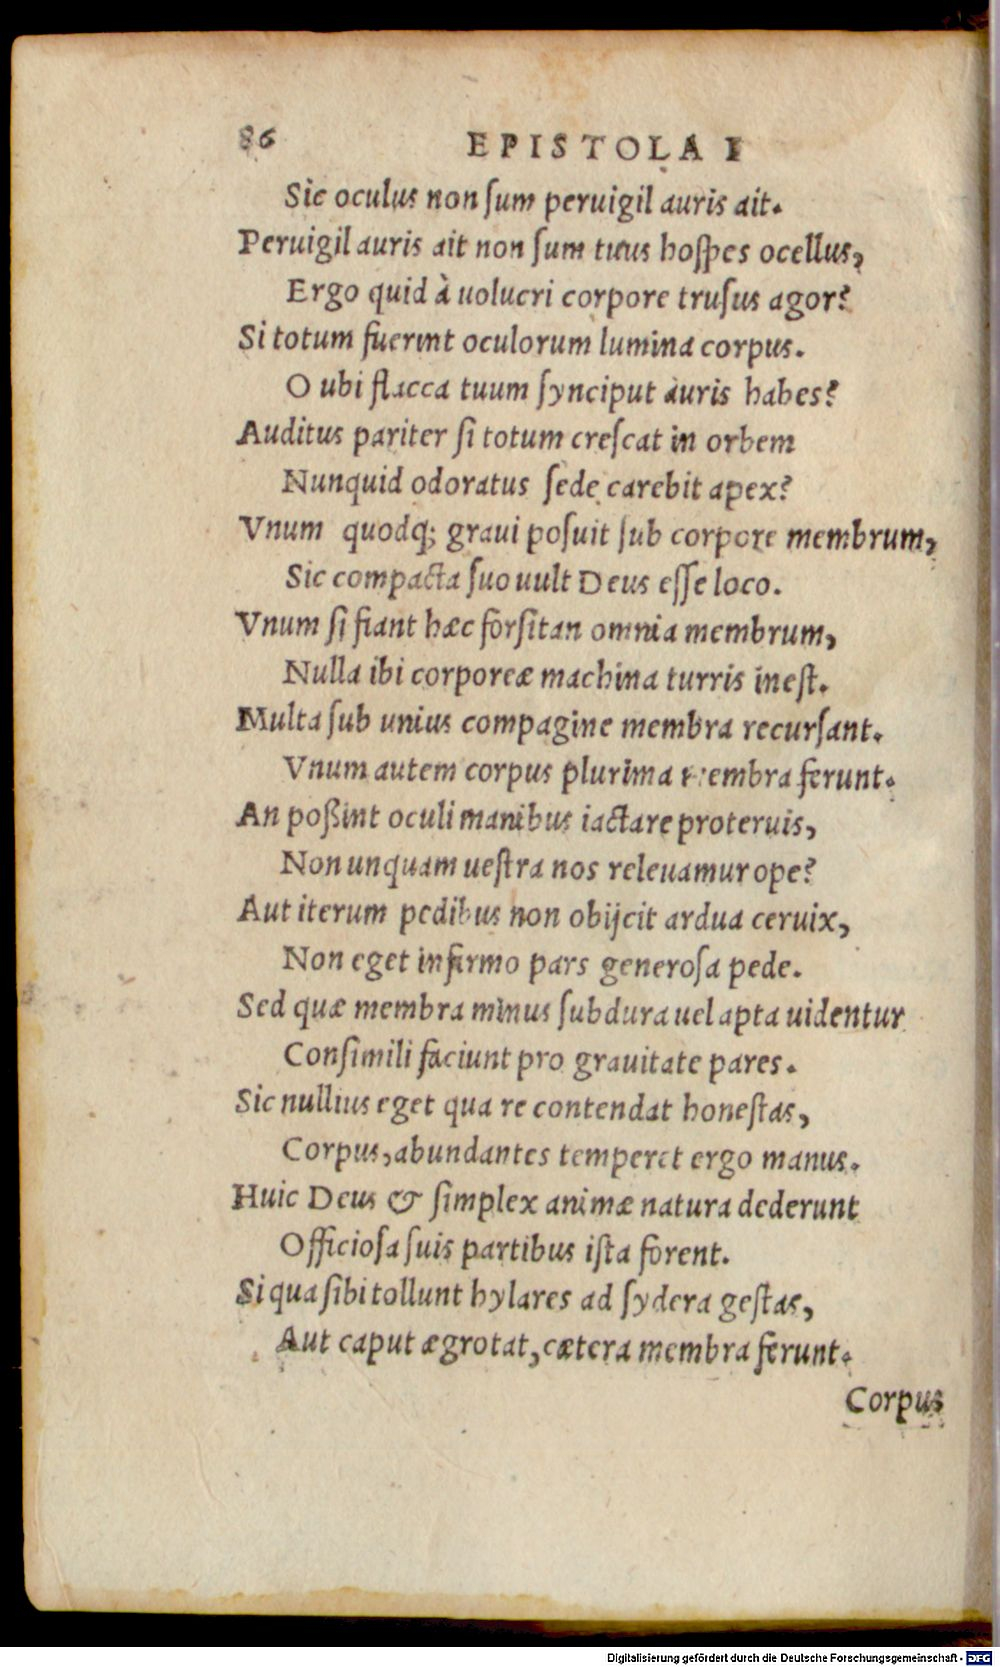 86 EPISTOLA I
Sic oculus non ſum peruigil auris ait.
Peruigil auris ait non ſum tuus hoſpes ocellus,
Ergo quid à uolucri corpore truſus agor?
Si totum fuerint oculorum lumina corpus.
O ubi flacca tuum ſynciput auris habes?
Auditus pariter ſi totum creſcat in orbem
Nunquid odoratus ſede carebit apex?
Vnum quodq; graui poſuit ſub corpore membrum,
Sic compacta ſuo uult Deus eſſe loco.
Vnum ſi fiant hæc forſitan omnia membrum,
Nulla ibi corporeæ machina turris ineſt.
Multa ſub unius compagine membra recurſant.
Vnum autem corpus plurima membra ferunt.
An poßint oculi manibus iactare proteruis,
Non unquam ueſtra nos releuamur ope?
Aut iterum pedibus non obijcit ardua ceruix,
Non eget infirmo pars generoſa pede.
Sed quæ membra minus ſubdura uel apta uidentur
Conſimili faciunt pro grauitate pares.
Sic nullius eget qua re contendat honeſtas,
Corpus, abundantes temperet ergo manus.
Huic Deus & ſimplex animæ natura dederunt
Officioſa ſuis partibus iſta forent.
Si qua ſibi tollunt hylares ad ſydera geſtas,
Aut caput ægrotat, cætera membra ferunt.
Corpus
Digitalisierung gefördert durch die Deutsche Forschungsgemeinschaft - DFG